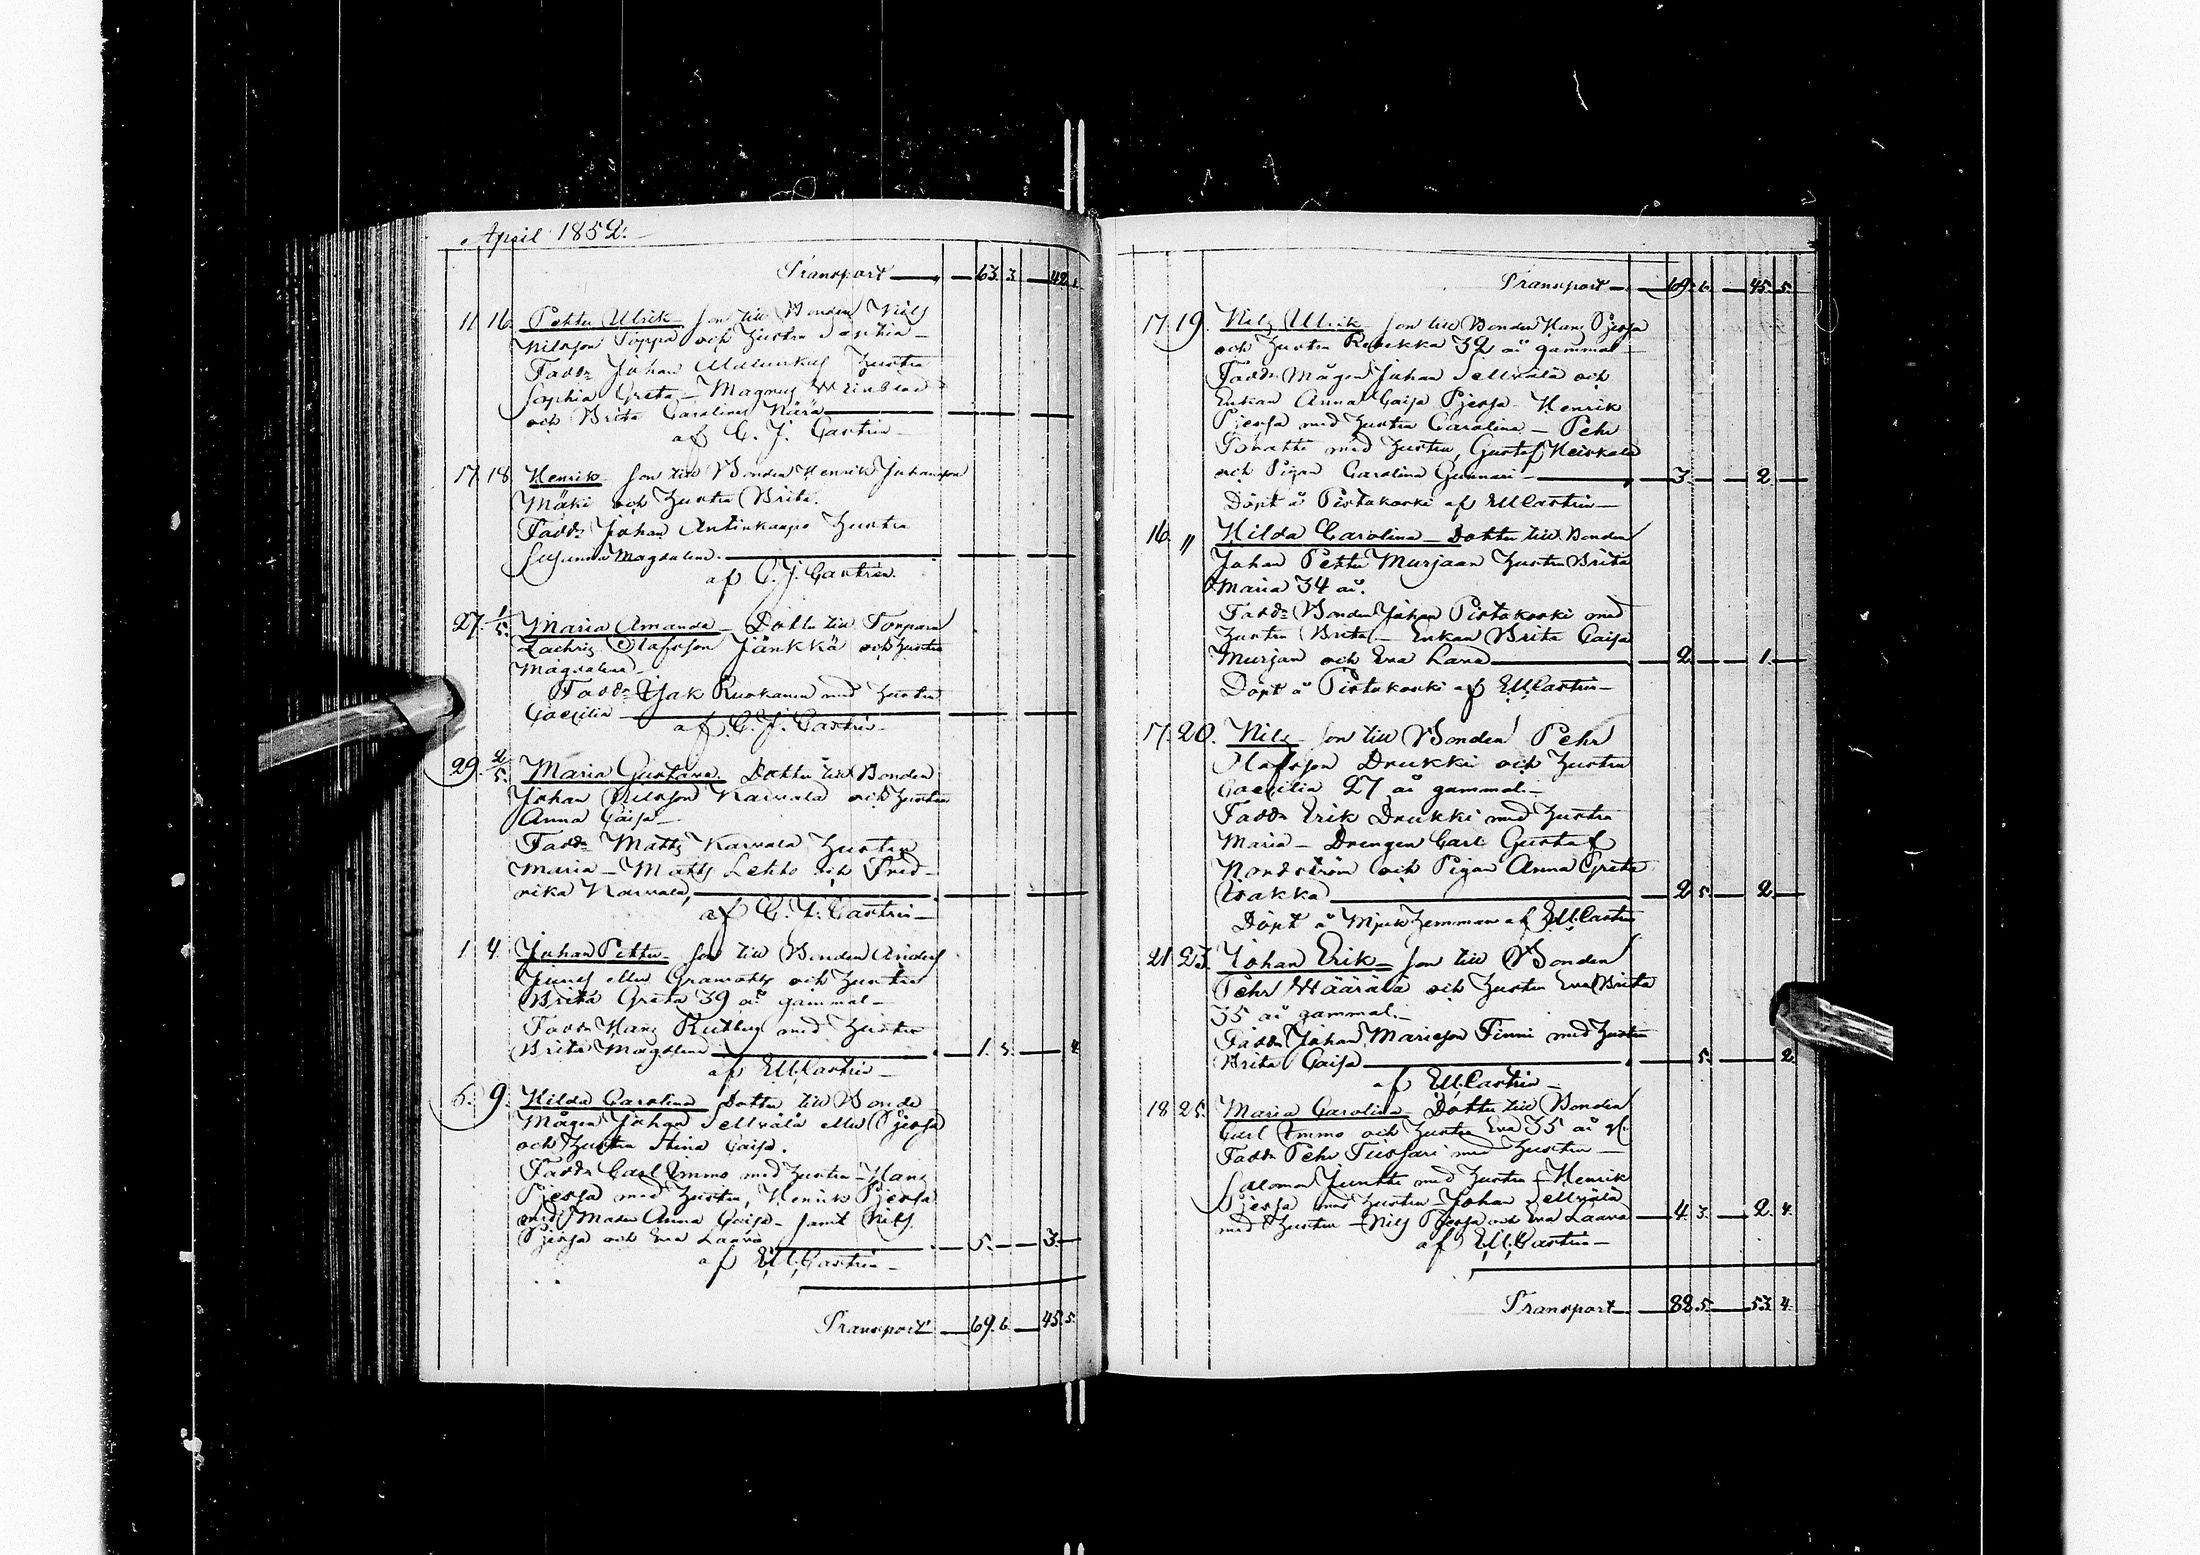 April 1852.
Transport 63. 3. 42.
11 16. Petter Ulrik son till Bonden Nils
Nilsson Poppa och Hustru Sophia
Faddr Johan Hustru
Sophia Greta Magnus
och Brita Carolina
af C. J. Castrén
17 18. Henrik son till Bonden Henrik Johansson
Mäki och Hustru Brita.
Faddr Johan Antinkaapo Hustru
Susanna Magdalena.
af C. J. Castrén.
27. 1/5. Maria Amanda Dotter till Torparn
Zachris Olafsson Jänkkä och Hustru
Magdalena
Faddr Isak Ruokanen med Hustru
Caecilia
af C. J. Castrén
29. 2/5. Maria Gustava. Dotter till Bonden
Johan Nilsson Karvala och Hustru
Anna Caisa
Faddr Matts Karvala Hustru
Maria Matts Lehto och Fred-
rika Karvala,
af C. J. Castrén
1 4. Johan Petter son till Bonden Anders
Junes eller och Hustru
Brita Greta 39 år gammal
Faddr Hans med Hustru
Brita Magdlena 1. 5. 4.
af E.U. Castrén
5. 9. Hilda Carolina Dotter till Bonde
Mågen Johan Sellvälä eller Pjersa
och Hustru Stina Caisa.
Faddr Carl Immo med Hustru Hans
Pjersa med Hustru, Henrik Pjersa
med Moder Anna Caisa samt Nils
Pjersa och Eva Laava 5. 3.
af E.U. Castrén
Transport 69. 6. 45. 5.
Transport 69. 6. 45. 5.
17 19. Nils Ulrik son till Bonden Hans Pjersa
och Hustru Rebekka 32 år gammal
Faddr Mågen Johan Sellvälä och
Enkan Anna Caisa Pjersa Henrik
Pjersa med Hustru Carolina Pehr
med Hustru, Gustaf Heiskala
och Pigan Carolina Gunnari 3. 2.
Döpt å Pirtakoski af E.U. Castrén
16. " Hilda Carolina Dotter till Bonden
Johan Petter Murjaan Hustru Brita
Maria 34 år.
Faddr Bonden Johan Pirtakoski med
Hustru Brita Enkan Brita Caisa
Murjan och Eva Lava 2. 1.
Döpt å Pirtakoski af E.U. Castrén
17. 20. Nils son till Bonden Pehr
Olafsson Drukki och Hustru
Caecilia 27 år gammal.
Faddr Erik Drukki med Hustru
Maria Drengen Carl Gustaf
Nordström och Pigan Anna Greta
Isakka 2. 5. 2.
Döpt å Hemman af E.U. Castrén
21 23. Johan Erik son till Bonden
Pehr Määrälä och Hustru Eva Brita
35 år gammal.
Faddr Johan Mariesson Finni med Hustru
Brita Caisa 5. 2.
af E.U. Castrén
18 25. Maria Carolina Dotter till Bonden
Carl Immo och Hustru Eva 35 år gl.
Faddr Pehr med Hustru
Salomon Junttu med Hustru Henrik
Pjersa med Hustru Johan Sellvälä
med Hustru Nils Pjersa och Eva Laava 4. 3. 2. 4.
af E.U. Castrén
Transport 82. 5. 53. 4.